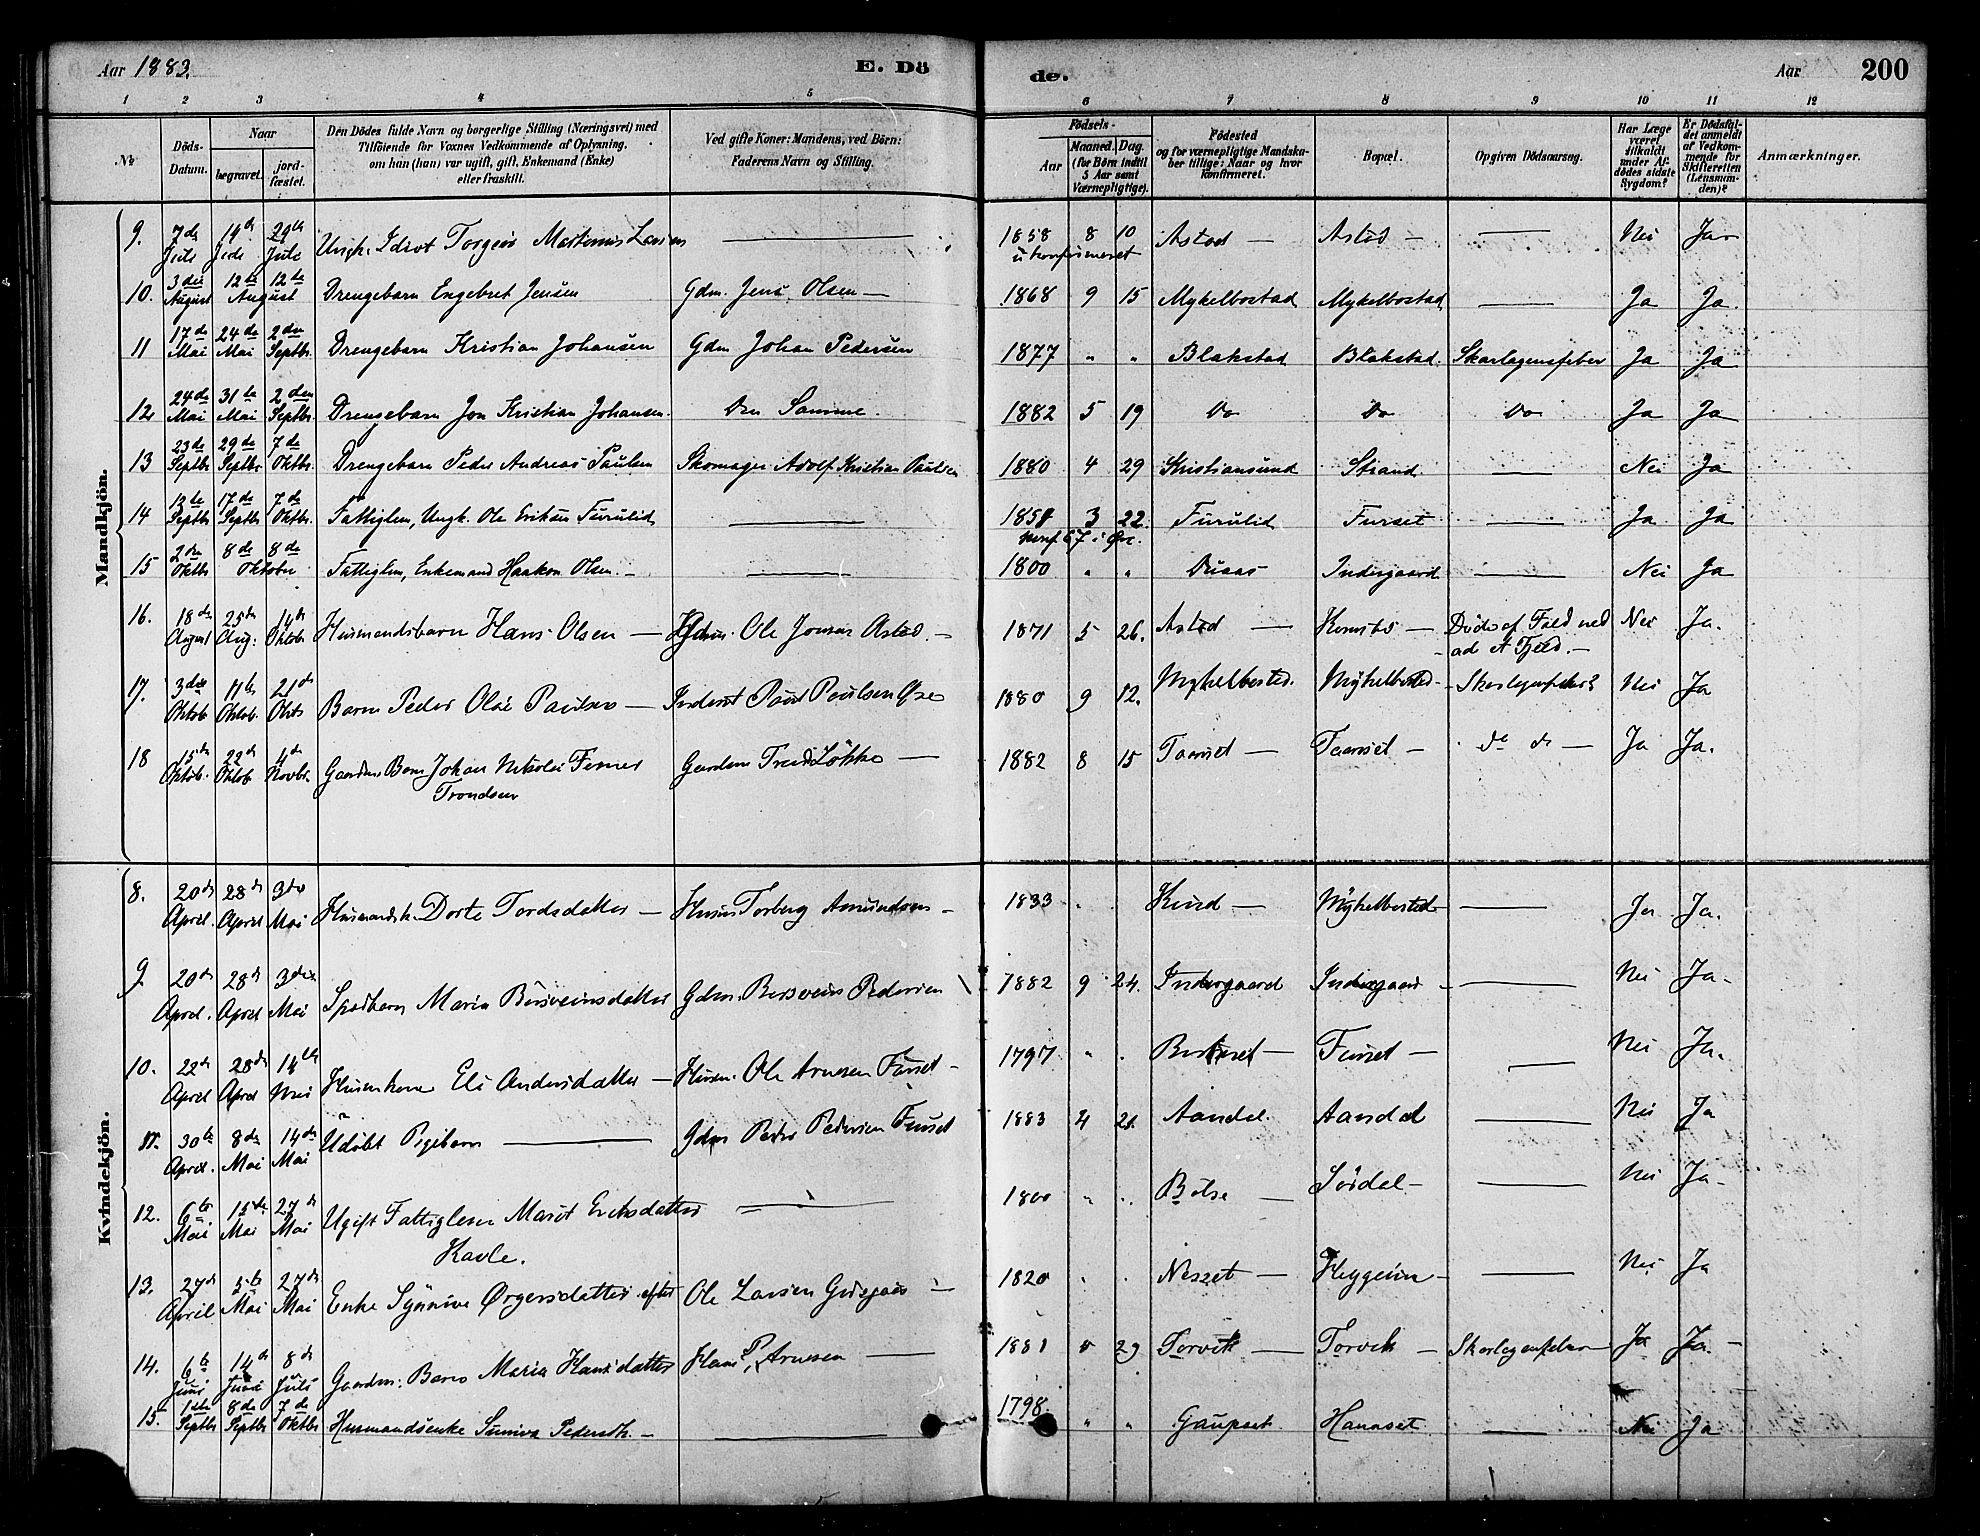 Aar 1883. E. Dö de. Aar 200
1 2 3 4 5 6 7 8 9 10 11 12
No. Döds-Datum. Naar begravet. jordfæstet. Den Dödes fulde Navn og borgerlige Stilling (Næringsvei) med Tilföiende for Voxnes Vedkommende af Oplysning, om han (hun) var ugift, gift, Enkemand (Enke) eller fraskilt. Ved gifte Koner: Mandens, ved Börn: Faderens Navn og Stilling. Födsels- Aar Maaned. Dag. (for Börn indtil 5 Aar samt Værnepligtige). Födested og for værnepligtige Mandskaber tillige: Naar og hvor konfirmeret. Bopæl. Opgiven Dödsaarsag. Har Læge været tilkaldt under Afdödes sidste Sygdom? Er Dödsfaldet anmeldt af Vedkommende for Skifteretten (Lensmanden)? Anmærkninger.
Mandkjön.
9. 7de Juli 19de Juli 29de Juli Ungk. Idiot Torgeir Martinus Larsen — 1858 8 10 Astad — Astad — — Nei Ja
ukonfirmeret
10. 3die August 12te 12te August Drengebarn Engebret Jensen Gdm. Jens Olsen — 1868 9 15 Mykelbostad Mykelbostad — Ja Ja
11 17de Mai 24de Mai 2den Septbr. Drengebarn Kristian Johansen Gdm Johan Pedersen 1877 " " Blakstad Blakstad Skarlagensfeber Ja Ja
12 24de Mai 31te Mai 2den Septbr. Drengebarn Jon Kristian Johansen. Den Samme. 1882 5 19 Do Do Do Ja Ja
13 23de Septbr 29de Septbr 7de Oktbr. Drengebarn Peder Andreas Paulsen Skomager Adolf Kristian Paulsen 1880 4 29 Kristiansund Strand — Nei Ja
14 13te Septbr 17de Septbr 7de Oktbr. Fattiglem, Ungk. Ole Eriksen Furulid — 1851 3 22. Furulid Furset — Ja Ja
konf. 67 i Øre.
15 2den Oktbr 8de 8de Oktober Fattiglem, Enkemand Haakon Olsen. — — 1800 " " Duaas Indergaard — Nei Ja
16. 18de August 25de Aug. 14de Oktober Husmandsbarn Hans Olsen — Ole Jonsen Astad. — 1871 5 26. Astad — — Døde af Fald ned Nei Ja.
ad et Fjeld. —
17. 3die Oktob. 11te Oktob. 21de Oktb Barn Peder Olai Paulsen — Inderst Paul Paulsen Øre 1880 9 12. Myhelbostad. Myhelbostad — Skarlagensfeber? Nei Ja
18 15de Oktob. 22de Oktob. 4de Novbr. Gaardm. Barn Johan Nikolai Ferner Gaardm Trond Løkke — 1882 8 15 Taarset — Taarset — do do — Ja Ja.
Trondsen
Kvindekjön.
8. 20de April. 28de April 3die Mai Husmandsk. Dorte Tordsdatter — Husm Torberg Amundsen — 1833 . . — Myhelbostad — — Ja Ja.
9. 20de April. 28de April 3die Mai Spædbarn Maria Bersveinsdatter Gdm. Bersvein Pedersen 1882 9 24. Indergaard Indergaard — — Nei Ja
10. 22de April 28de April 14de Mai Husm.kone Eli Andersdatter — Husm. Ole Arnesen Furset — 1797 " . — Furset — — Nei Ja.
11. 30te April. 8de Mai 14de Mai Udøbt Pigebarn — Gdm Peder Pedersen Furset 1883 4 Aandal Aandal — Nei Ja
12. 6te Mai 15de Mai 27de Mai Ugift Fattiglem Marit Eriksdatter — 1800 " . — Sördal — — Nei Ja
Kavle.
13. 27de April 5te Mai 27de Mai Enke Synnive Ørgersdatter efter Ole Larsen — 1820 . . Nesset — Heggeim — — Nei Ja
14. 6te Juni 14de Juni 8de Juli Gaardm. Barn Maria Hansdatter Hans P. Arnesen — 1881 29 Torvik — Torvik — Skarlagensfeber Ja Ja
15. 1ste Septbr 8de Septbr 7de Oktbr Husmandsenke Suniva Pedersdtr. — — 1798 " " Gaupset Hanaset — Nei Ja